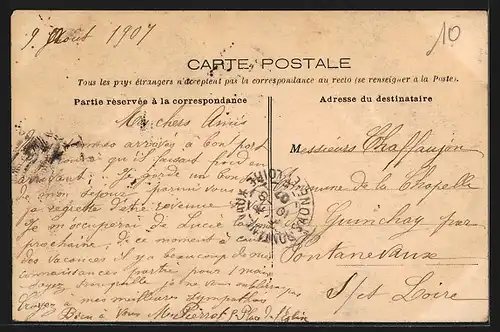 9 Août 1907
10
CARTE POSTALE
Tous les pays étrangers n'acceptent pas la correspondance au recto (se renseigner à la Poste).
Partie réservée à la correspondance
Adresse du destinataire
Mes chers Amis
sommes arrivés à bon port
qu'il faisait froid en
arrivant. J'ai gardé un bon
de mon séjour parmi vous et
je regrette d'être revenue
Je m'occuperai de Lucie
prochaine, de ce moment à cause
des vacances il y a beaucoup de mes
connaissances parties pour 1 mois
Soyez tranquille je ne vous oublierai pas
à mes meilleures sympathies
Bien à Vous Mme Pierrot 8 Place de l'Eglise
Messieurs Chaffaujon
Commune de la Chapelle
Guinchay par
Pontanevaux
S/et Loire